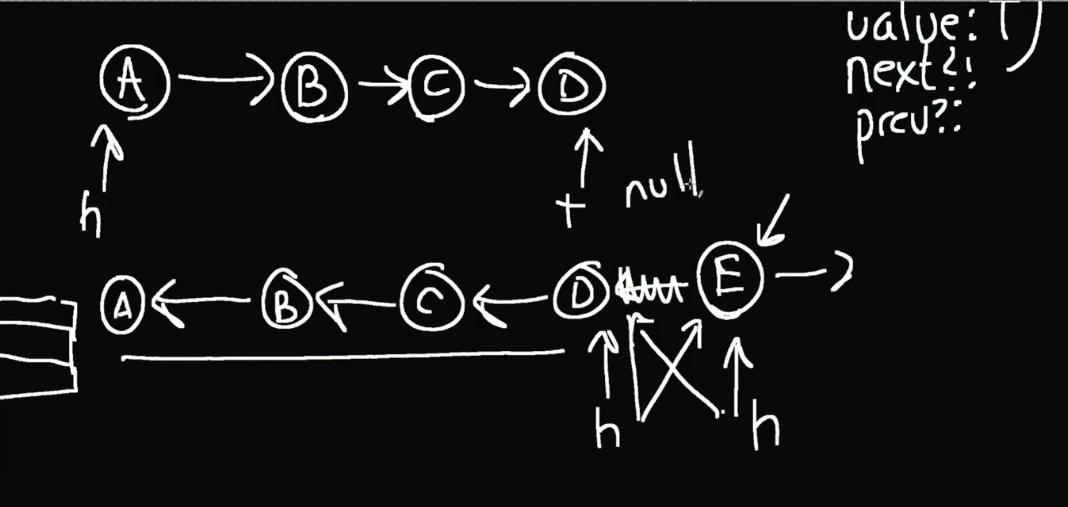 value: T
next?:
prev?:
A B C D
h
t
null
A B C D E
h
h